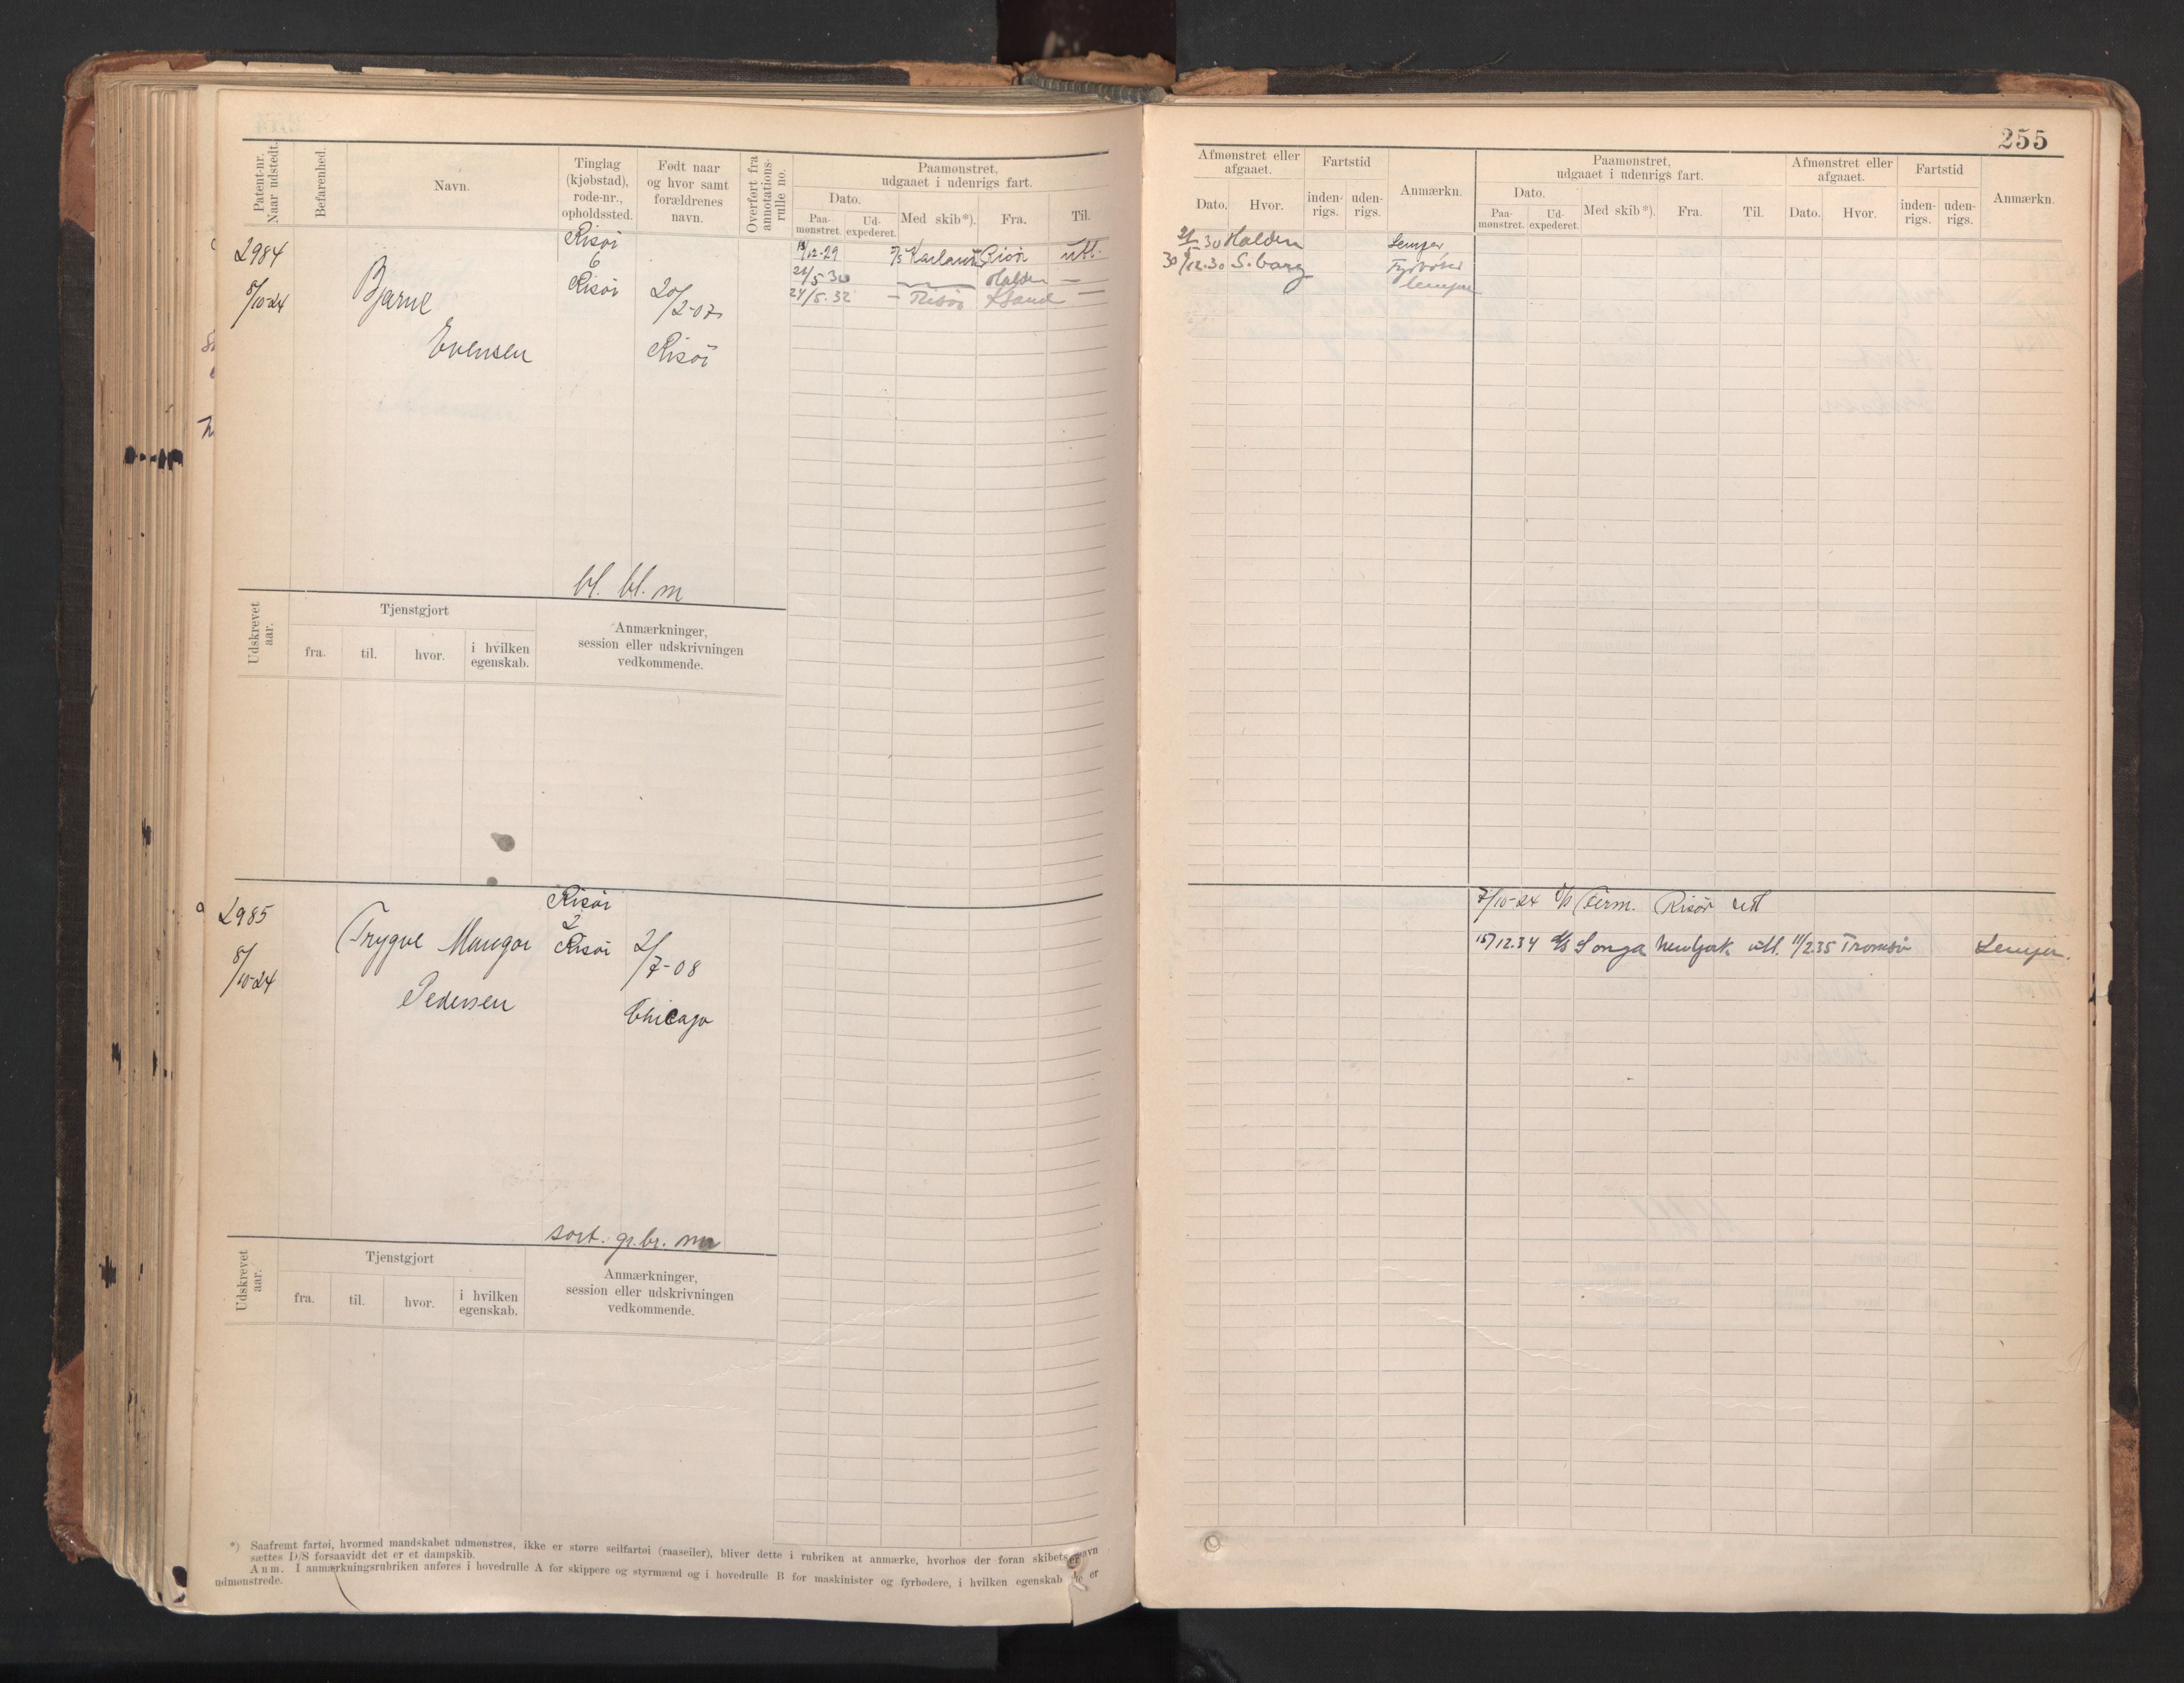 255
Patent-nr. Naar udstedt.
Befarenhed.
Navn.
Tinglag (kjøbstad), rode-nr., opholdssted.
Født naar og hvor samt forældrenes navn.
Overført fra annotations-rulle no.
Paamønstret, udgaaet i udenrigs fart.
Dato.
Paa-mønstret.
Ud-expederet.
Med skib*).
Fra.
Til.
Afmønstret eller afgaaet.
Dato.
Hvor.
Fartstid
inden-rigs.
uden-rigs.
Anmærkn.
Paamønstret, udgaaet i udenrigs fart.
Dato.
Paa-mønstret.
Ud-expederet.
Med skib*).
Fra.
Til.
Afmønstret eller afgaaet.
Dato.
Hvor.
Fartstid
inden-rigs.
uden-rigs.
Anmærkn.
2984
8/10-24
Bjarne
Evensen
Risör
6
Risör
20/2-07
Risör
13/12-29 Risör utl.
21/5 30 Halden —
24/5. 32 — Risör Xsand
30 Halden Lemper
30/12.30 S. borg Fyrböter
lemper
bl. bl. m
Udskrevet aar.
Tjenstgjort
fra.
til.
hvor.
i hvilken egenskab.
Anmærkninger, session eller udskrivningen vedkommende.
2985
8/10-24
Trygve Mangor
Pedersen
Risör
2
Risör
2/7-08
Chicago
7/10-24 Risör utl
15/12.34 d/s Songa New York utl. 11/2.35 Tromsö Lemper.
sort. gr. br. m
Udskrevet aar.
Tjenstgjort
fra.
til.
hvor.
i hvilken egenskab.
Anmærkninger, session eller udskrivningen vedkommende.
*) Saafremt fartøi, hvormed mandskabet udmønstres, ikke er større seilfartøi (raaseiler), bliver dette i rubriken at anmærke, hvorhos der foran skibets navn
sættes D/S forsaavidt det er et dampskib.
Anm. I anmærkningsrubriken anføres i hovedrulle A for skippere og styrmænd og i hovedrulle B for maskinister og fyrbødere, i hvilken egenskab de er
udmønstrede.